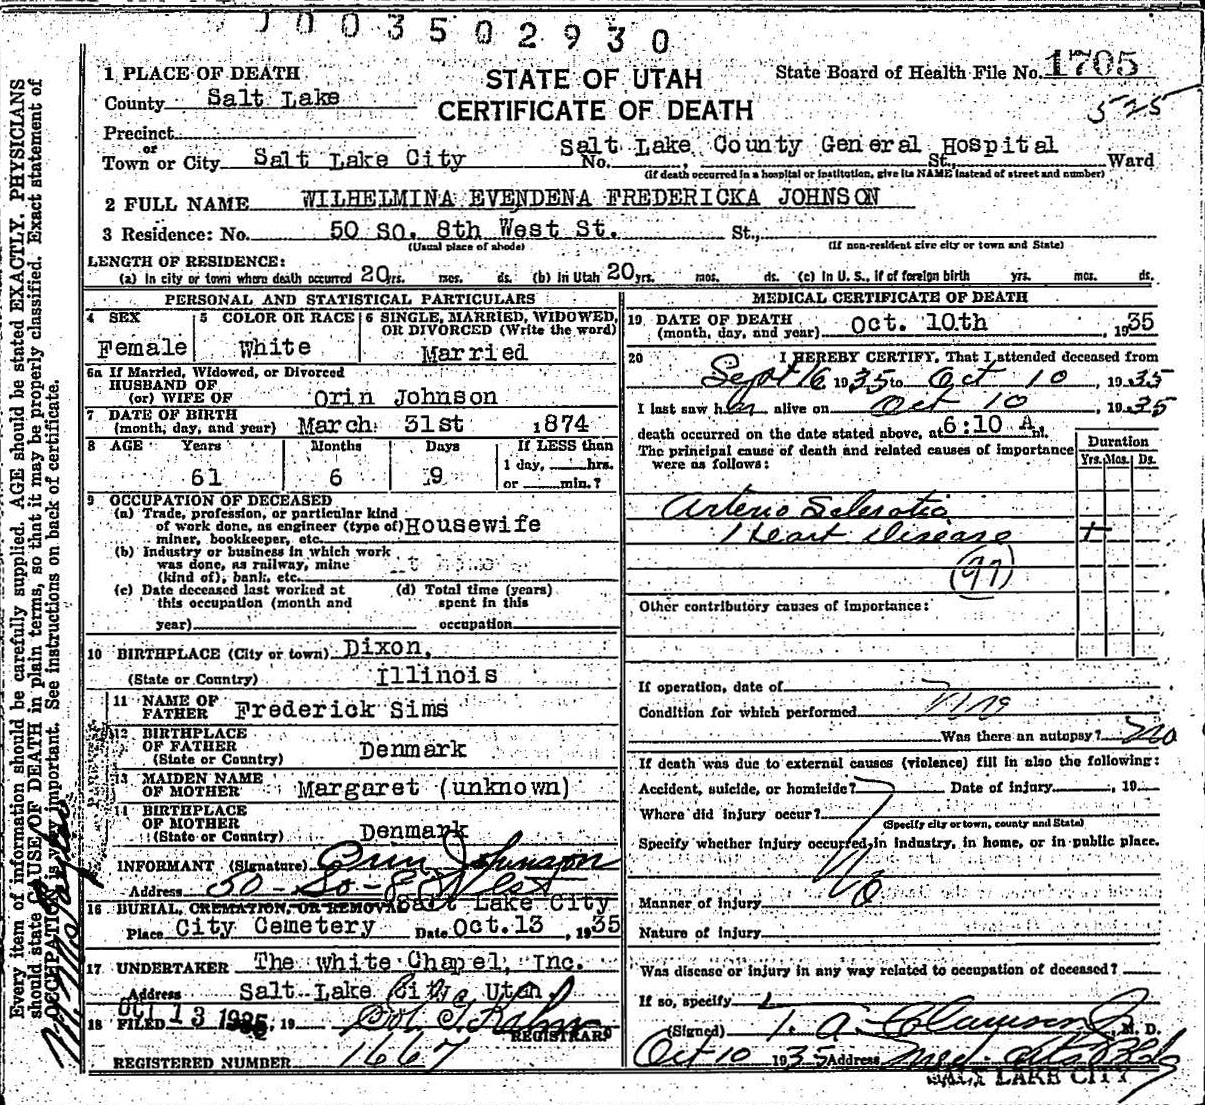 J 0 0 3 5 0 2 9 3 0
STATE OF UTAH
CERTIFICATE OF DEATH
State Board of Health File No. 1705
525
1 PLACE OF DEATH
County Salt Lake
Precinct
or
Town or City Salt Lake City No. Salt Lake County General Hospital St., Ward
(If death occurred in a hospital or institution, give its NAME instead of street and number)
2 FULL NAME WILHELMINA EVENDENA FREDERICKA JOHNSON
3 Residence: No. 50 So. 8th West St. St.,
(Usual place of abode) (If non-resident give city or town and State)
LENGTH OF RESIDENCE:
(a) In city or town where death occurred 20 yrs. mos. ds. (b) in Utah 20 yrs. mos. ds. (c) in U. S., if of foreign birth yrs. mos. ds.
PERSONAL AND STATISTICAL PARTICULARS
4 SEX
Female
5 COLOR OR RACE
White
6 SINGLE, MARRIED, WIDOWED,
OR DIVORCED (Write the word)
Married
6a If Married, Widowed, or Divorced
HUSBAND OF
(or) WIFE OF Orin Johnson
7 DATE OF BIRTH
(month, day, and year) March 31st 1874
8 AGE Years Months Days If LESS than
61 6 9 1 day, hrs.
or min.?
9 OCCUPATION OF DECEASED
(a) Trade, profession, or particular kind
of work done, as engineer (type of) Housewife
miner, bookkeeper, etc.
(b) Industry or business in which work
was done, as railway, mine
(kind of), bank, etc.
(c) Date deceased last worked at
this occupation (month and
year)
(d) Total time (years)
spent in this
occupation
10 BIRTHPLACE (City or town) Dixon,
(State or Country) Illinois
11 NAME OF
FATHER Frederick Sims
12 BIRTHPLACE
OF FATHER
(State or Country) Denmark
13 MAIDEN NAME
OF MOTHER Margaret (unknown)
14 BIRTHPLACE
OF MOTHER
(State or Country) Denmark
15 INFORMANT (Signature) Orin Johnson
Address 50 - So - 8 West
16 BURIAL, CREMATION, OR REMOVAL Salt Lake City
Place City Cemetery Date Oct. 13, 1935
17 UNDERTAKER The White Chapel, Inc.
Address Salt Lake City Utah
18 FILED OCT 13 1935, 19
REGISTRAR
REGISTERED NUMBER 1667
MEDICAL CERTIFICATE OF DEATH
19 DATE OF DEATH
(month, day, and year) Oct. 10th, 1935
20 I HEREBY CERTIFY, That I attended deceased from
Sept 16 1935 to Oct 10, 1935
I last saw her alive on Oct 10, 1935
death occurred on the date stated above, at 6:10 A. M.
The principal cause of death and related causes of importance
were as follows:
Duration
Yrs. Mos. Ds.
Arterio Sclerotic
Heart Disease +
(97)
Other contributory causes of importance:
If operation, date of
Condition for which performed
Was there an autopsy? no
If death was due to external causes (violence) fill in also the following:
Accident, suicide, or homicide? Date of injury, 19
Where did injury occur?
(Specify city or town, county and State)
Specify whether injury occurred in industry, in home, or in public place.
No
Manner of injury
Nature of injury
Was disease or injury in any way related to occupation of deceased?
If so, specify
(Signed) T. A. Clawson Jr M. D.
Oct 10 1935 Address Med. Arts Bldg
SALT LAKE CITY
Every item of information should be carefully supplied. AGE should be stated EXACTLY. PHYSICIANS
should state CAUSE OF DEATH in plain terms, so that it may be properly classified. Exact statement of
OCCUPATION is very important. See instructions on back of certificate.